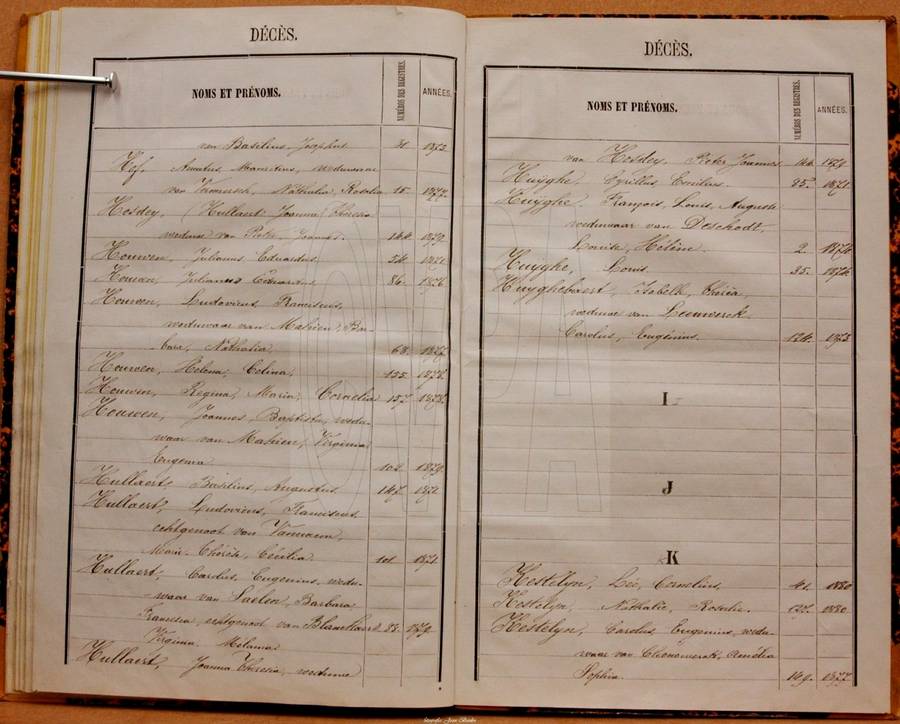 DÉCÈS.
NOMS ET PRÉNOMS. NUMÉROS DES REGISTRES. ANNÉES.
van Basilius Josephus
Hof, weduwnaar
van Nathalia, Rosalia 1877
Hosdey, (Hullaert Joanna Theresia
weduwe van Pieter, Joannes. 144 1879
Houwen, Julianus Eduardus.
Houwen, Julianus Eduardus. 86. 1876
Houwen, Ludovicus, Franciscus,
weduwaar van Mahieu, Bar-
bara, Nathalia. 68. 1877
Houwen, Helena, Celina, 155. 1878.
Houwen, Regina, Maria, Cornelia 157. 1878.
Houwen, Joannes, Baptista, wedu-
waar van Mahieu, Virginia
Eugenia 1879
Hullaert, Basilius, Augustus 147.
Hullaert, Ludovicus, Franciscus.
echtgenoot van
Marie. Thérèse, Cécilia. 101
Hullaert, Carolus, Eugenius, wedu-
waar van Laslen, Barbara
Francisca, echtgenoot van 88. 1879.
Virginia, Melania
Hullaert, Joanna Theresia, weduwe
DÉCÈS.
NOMS ET PRÉNOMS. NUMÉROS DES REGISTRES. ANNÉES.
van Hosdey, Pieter Joannes 144 1879
Huyghe, Cyrillus, Emilius. 85.
Huyghe, François, Louis, Auguste
weduwaar van Deschodt,
Louise, Hélène 2. 1874
Huyghe, Louis. 35. 1874
Huyghebaert, Isabelle, Thérèse,
weduwe van Leeuwerck
Carolus, Eugenius. 124.
I
J
K
Kestelyn, Léo, Cornelius, 41. 1880
Kestelyn, Nathalie, Rosalie. 127. 1880.
Kestelyn, Carolus, Eugenius, wedu-
waar van Amélia
Sophia. 149. 1877